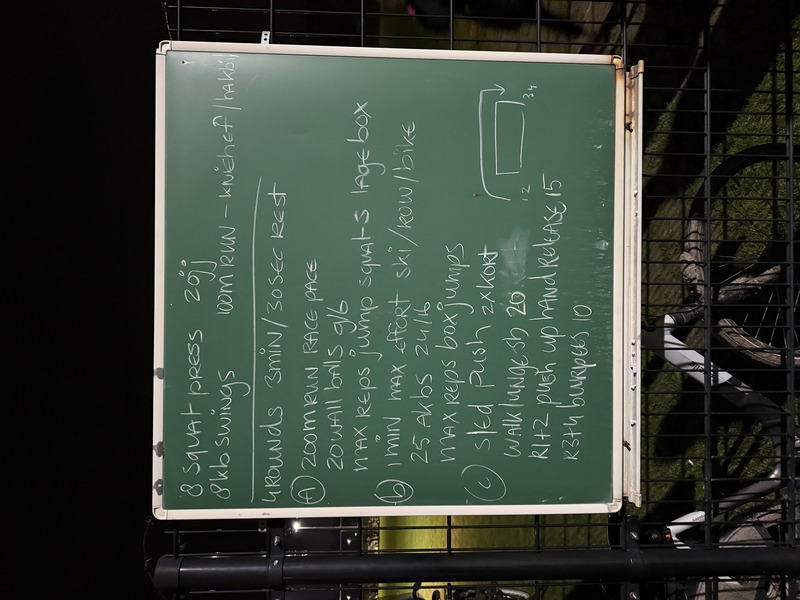 8 squat press 20jj
8 kb swings 100m RUN - kniehef/hakbil
4 ROUNDS 3min/30SEC REST
A 200m RUN RACE PACE
20 wall balls 9/6
max reps jump squats lage box
b 1min max effort ski/row/bike
25 Akbs 24/16
max reps box jumps
C sled push 2x kort
walk lunge sb 20
R1+2 push up hand release 15
R3+4 burpees 10
12
34